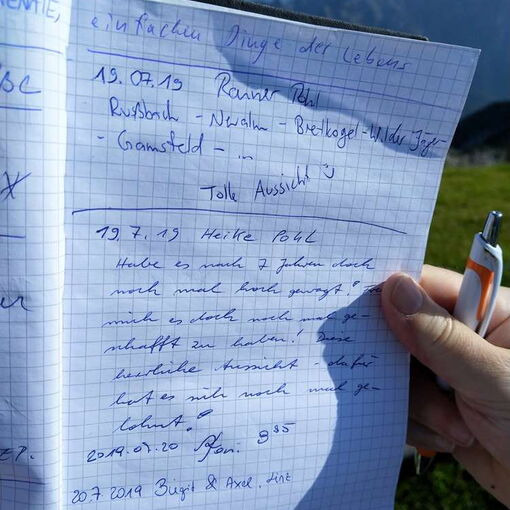 einfachen Dinge des Lebens
19.07.19 Rainer Pohl
Rußbach - Neualm - Breitkogel - Wilder Jäger
- Gamsfeld - ...
Tolle Aussicht
19.7.19 Heike Pohl
Habe es nach 7 Jahren doch
noch mal hoch gewagt!
mich es doch noch mal ge-
schafft zu haben! Diese
herrliche Aussicht - dafür
hat es sich noch mal ge-
lohnt!
2019.07.20 8³⁵
20.7.2019 Birgit & Axel